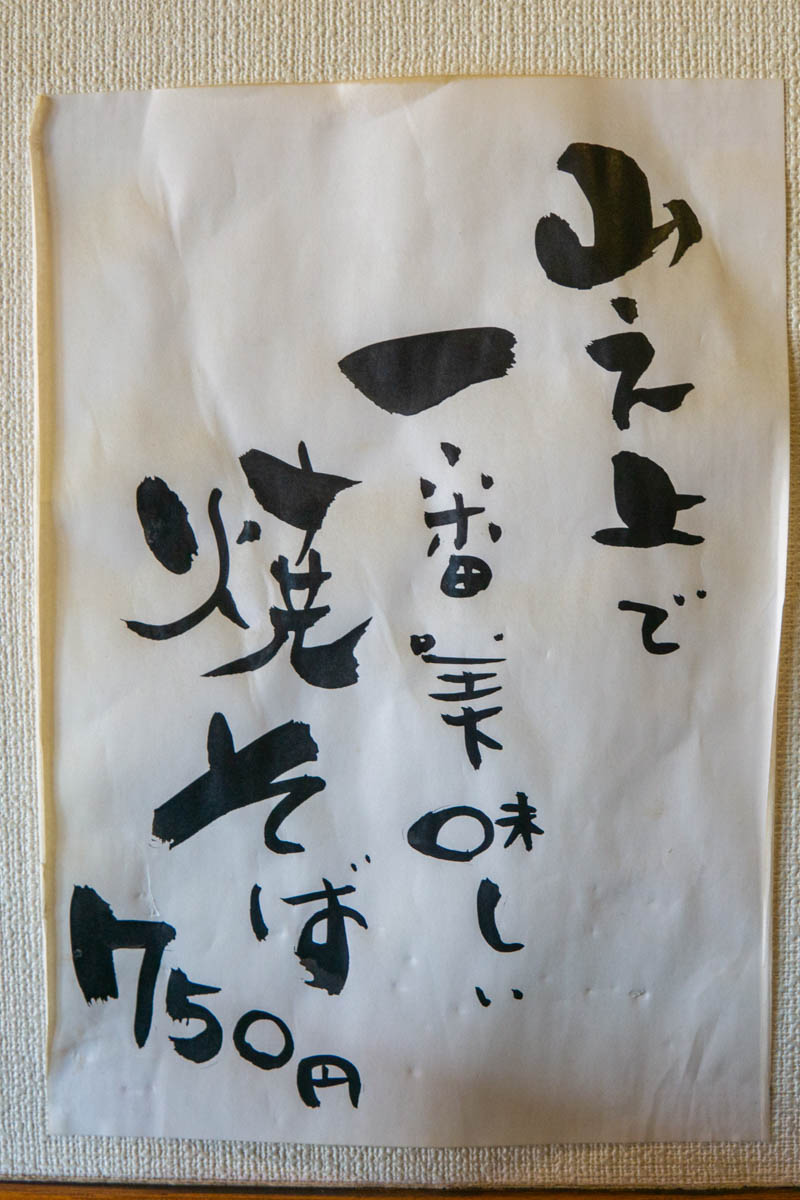 山之上で
一番美味しい
焼そば
750円